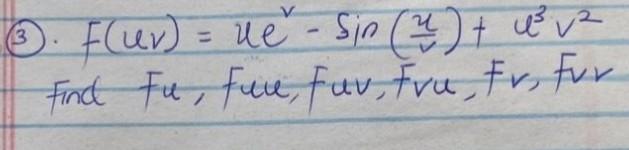 ③. F(uv) = ue^v - Sin (u/v) + u³ v²
Find Fu, Fuu, Fuv, Fvu, Fv, Fvv